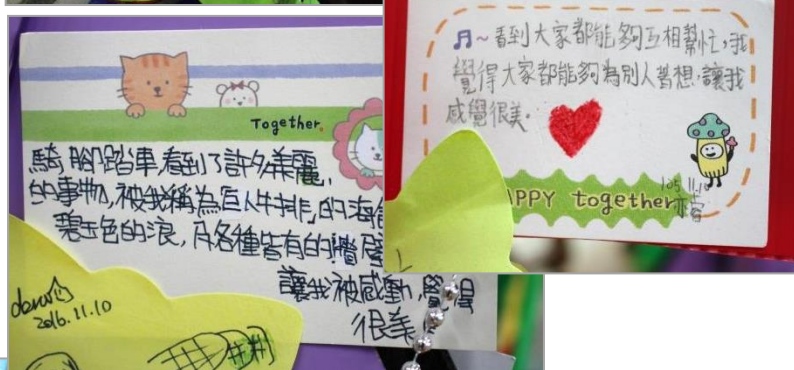 Together
騎腳踏車,看到了許多美麗
的事物,被我稱為「巨人牛排」的海
碧玉色的浪,及各種皆有的牆
讓我被感動,覺得
很美
2016.11.10
♬~看到大家都能夠互相幫忙,我
覺得大家都能夠為別人著想,讓我
感覺很美。
PPY together
105.11.10